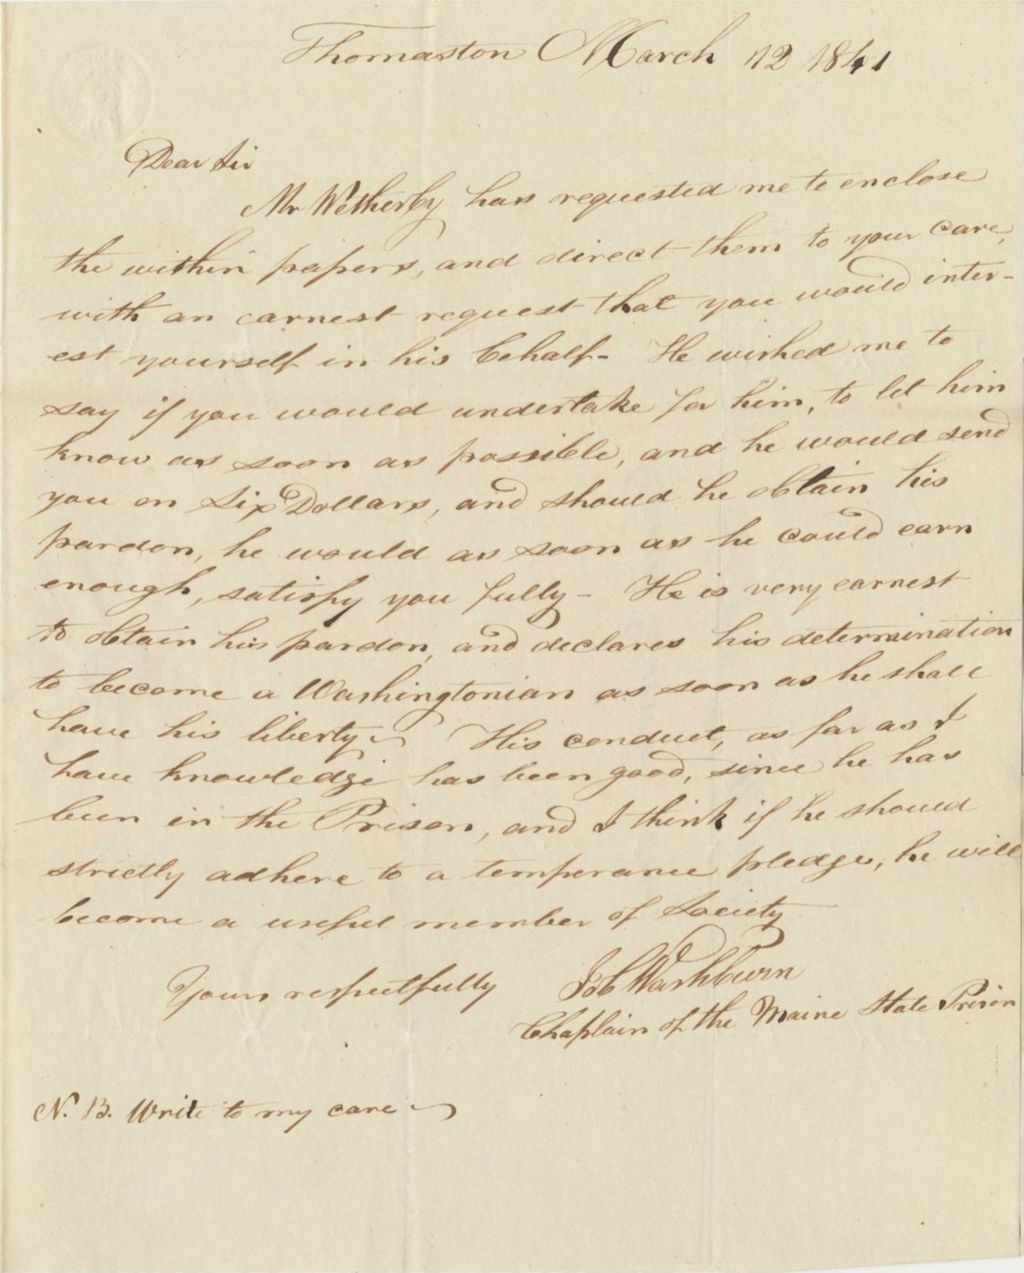 Thomaston March 12 1841
Dear Sir
Mr Wetherby has requested me to enclose
the within papers, and direct them to your care,
with an earnest request that you would inter-
est yourself in his behalf - He wished me to
say if you would undertake for him, to let him
know as soon as possible, and he would send
you on Six Dollars, and should he obtain his
pardon, he would as soon as he could earn
enough, satisfy you fully - He is very earnest
to obtain his pardon, and declares his determination
to become a Washingtonian as soon as he shall
have his liberty - His conduct, as far as I
have knowledge has been good, since he has
been in the Prison, and I think if he should
strictly adhere to a temperance pledge, he will
become a useful member of Society
Yours respectfully Job Washburn
Chaplain of the Maine State Prison
N. B. Write to my care -